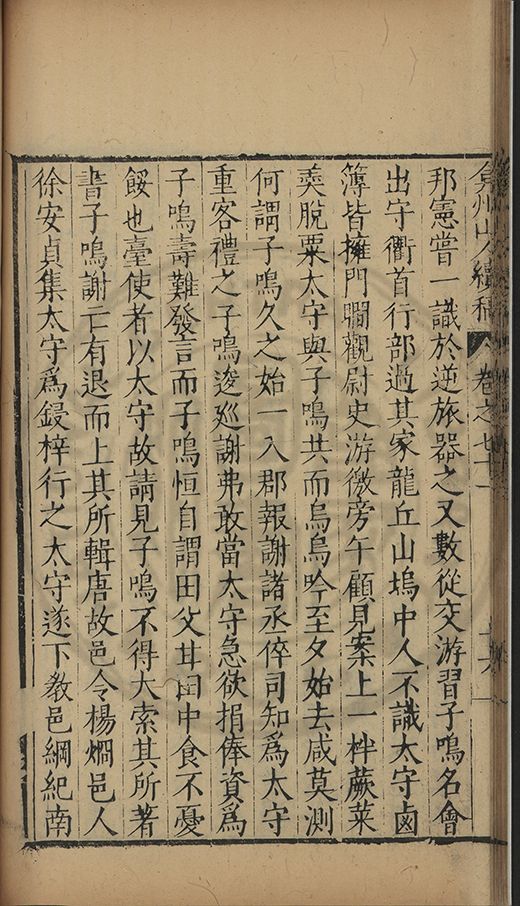 弇州山人續稿 卷之七十一 十六
邦憲嘗一識於逆旅器之又數從交游習子鳴名會
出守衢首行部過其家龍丘山塢中人不識太守鹵
簿皆擁門瞷觀尉史游徼旁午顧見案上一柈蕨萊
奠脫粟太守與子鳴共而烏烏吟至夕始去咸莫測
何謂子鳴久之始一入郡報謝諸丞倅司知爲太守
重客禮之子鳴逡廵謝弗敢當太守急欲捐俸資爲
子鳴壽難發言而子鳴恒自謂田父耳田中食不憂
餒也臺使者以太守故請見子鳴不得大索其所著
書子鳴謝亡有退而上其所輯唐故邑令楊烱邑人
徐安貞集太守爲鋟梓行之太守遂下敎邑綱紀南